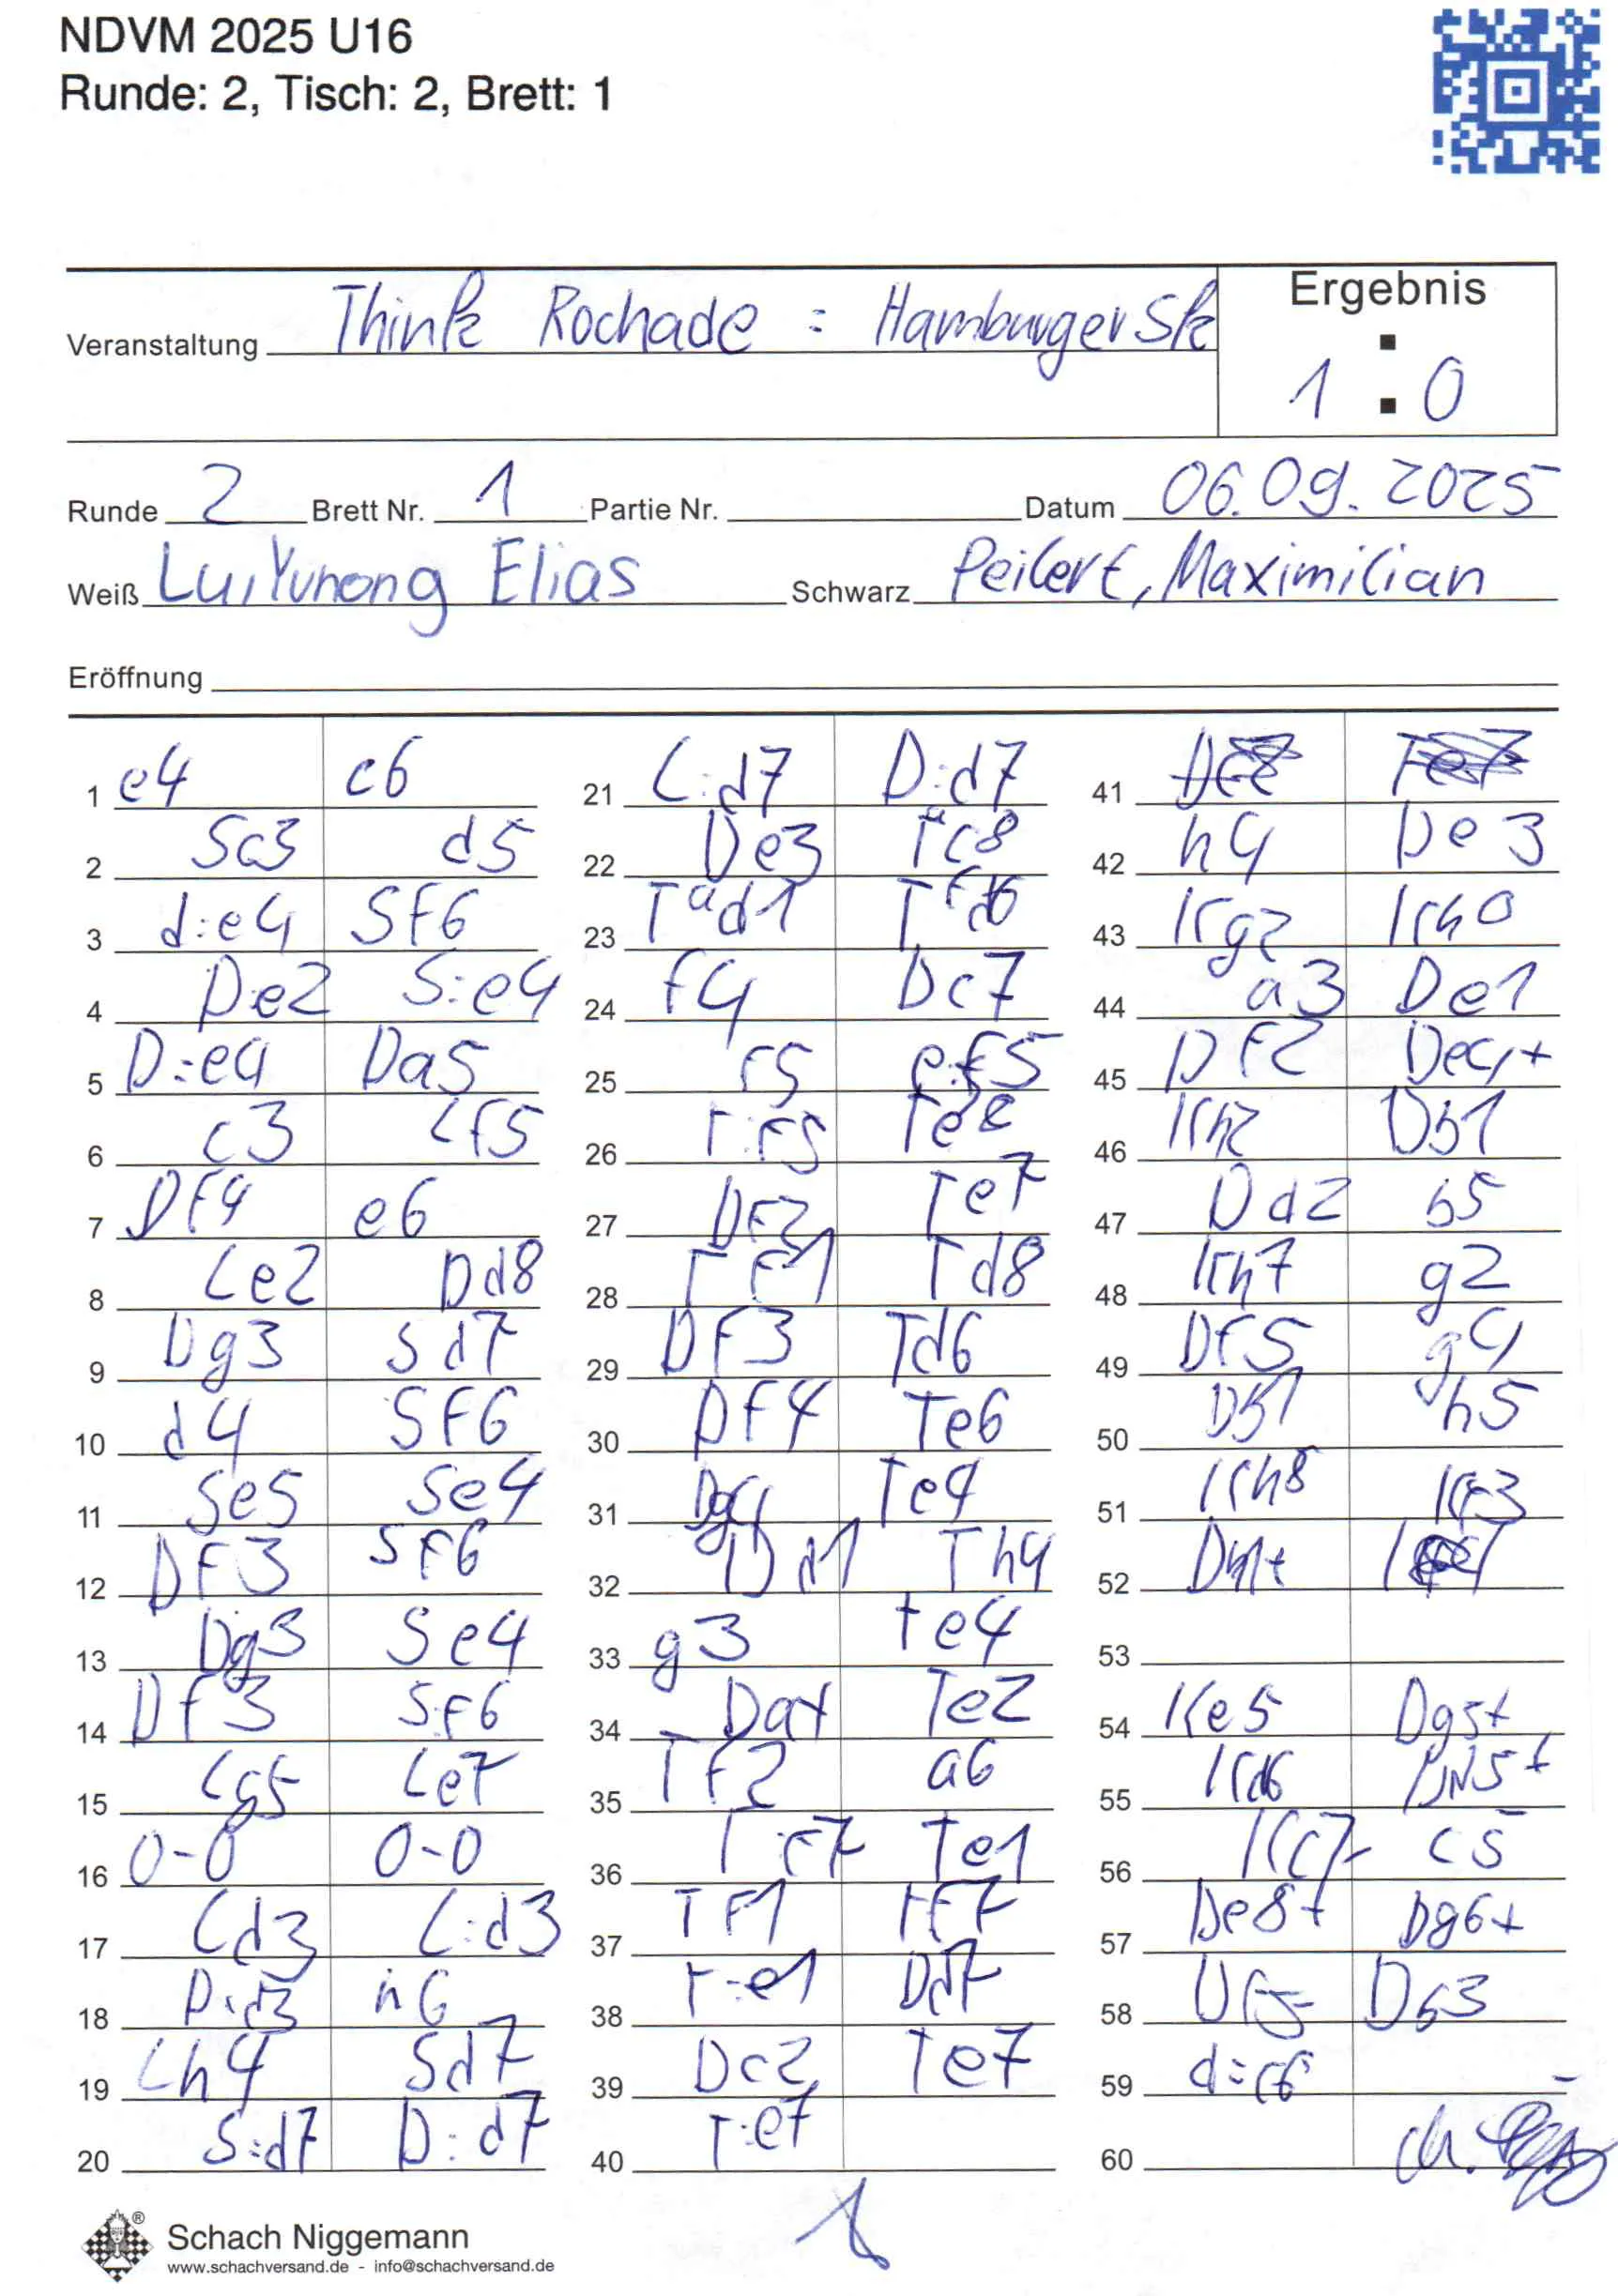 NDVM 2025 U16
Runde: 2, Tisch: 2, Brett: 1
Ergebnis
Veranstaltung Think Rochade : Hamburger SK
1 : 0
Runde 2 Brett Nr. 1 Partie Nr. Datum 06.09.2025
Weiß Lui Yuhong Elias Schwarz Peilert, Maximilian
Eröffnung
1 e4 c6
2 Sc3 d5
3 d:e4 Sf6
4 De2 S:e4
5 D:e4 Da5
6 c3 Lf5
7 Df4 e6
8 Le2 Dd8
9 Dg3 Sd7
10 d4 Sf6
11 Se5 Se4
12 Df3 Sf6
13 Dg3 Se4
14 Df3 Sf6
15 Lg5 Le7
16 0-0 0-0
17 Ld3 L:d3
18 D:d3 h6
19 Lh4 Sd7
20 S:d7 D:d7
21 L:d7 D:d7
22 De3 Tc8
23 Tad1 Tfd6
24 f4 Dc7
25 f5 e:f5
26 T:f5 Te8
27 Df2 Te7
28 Tf1 Td8
29 Df3 Td6
30 Df4 Te6
31 Dg4 Te4
32 Dd1 Th4
33 g3 te4
34 Da4 Te2
35 Tf2 a6
36 T:f7 Te1
37 Tf1 tf7
38 T:e1 Dd7
39 Dc2 Te7
40 T:e7
41
42 h4 De3
43 Kg2 Kh8
44 a3 De1
45 Df2 De4+
46 Kh2 Db1
47 Dd2 b5
48 Kh7 g2
49 Df5 g4
50 Db1 h5
51 Kh8 Kf3
52 Dh1+
53
54 Ke5 Dg5+
55 Kd6 Dh5+
56 Kc7 c5
57 De8+ Dg6+
58 Df5 Db3
59 d:c6
60
Schach Niggemann
www.schachversand.de - info@schachversand.de